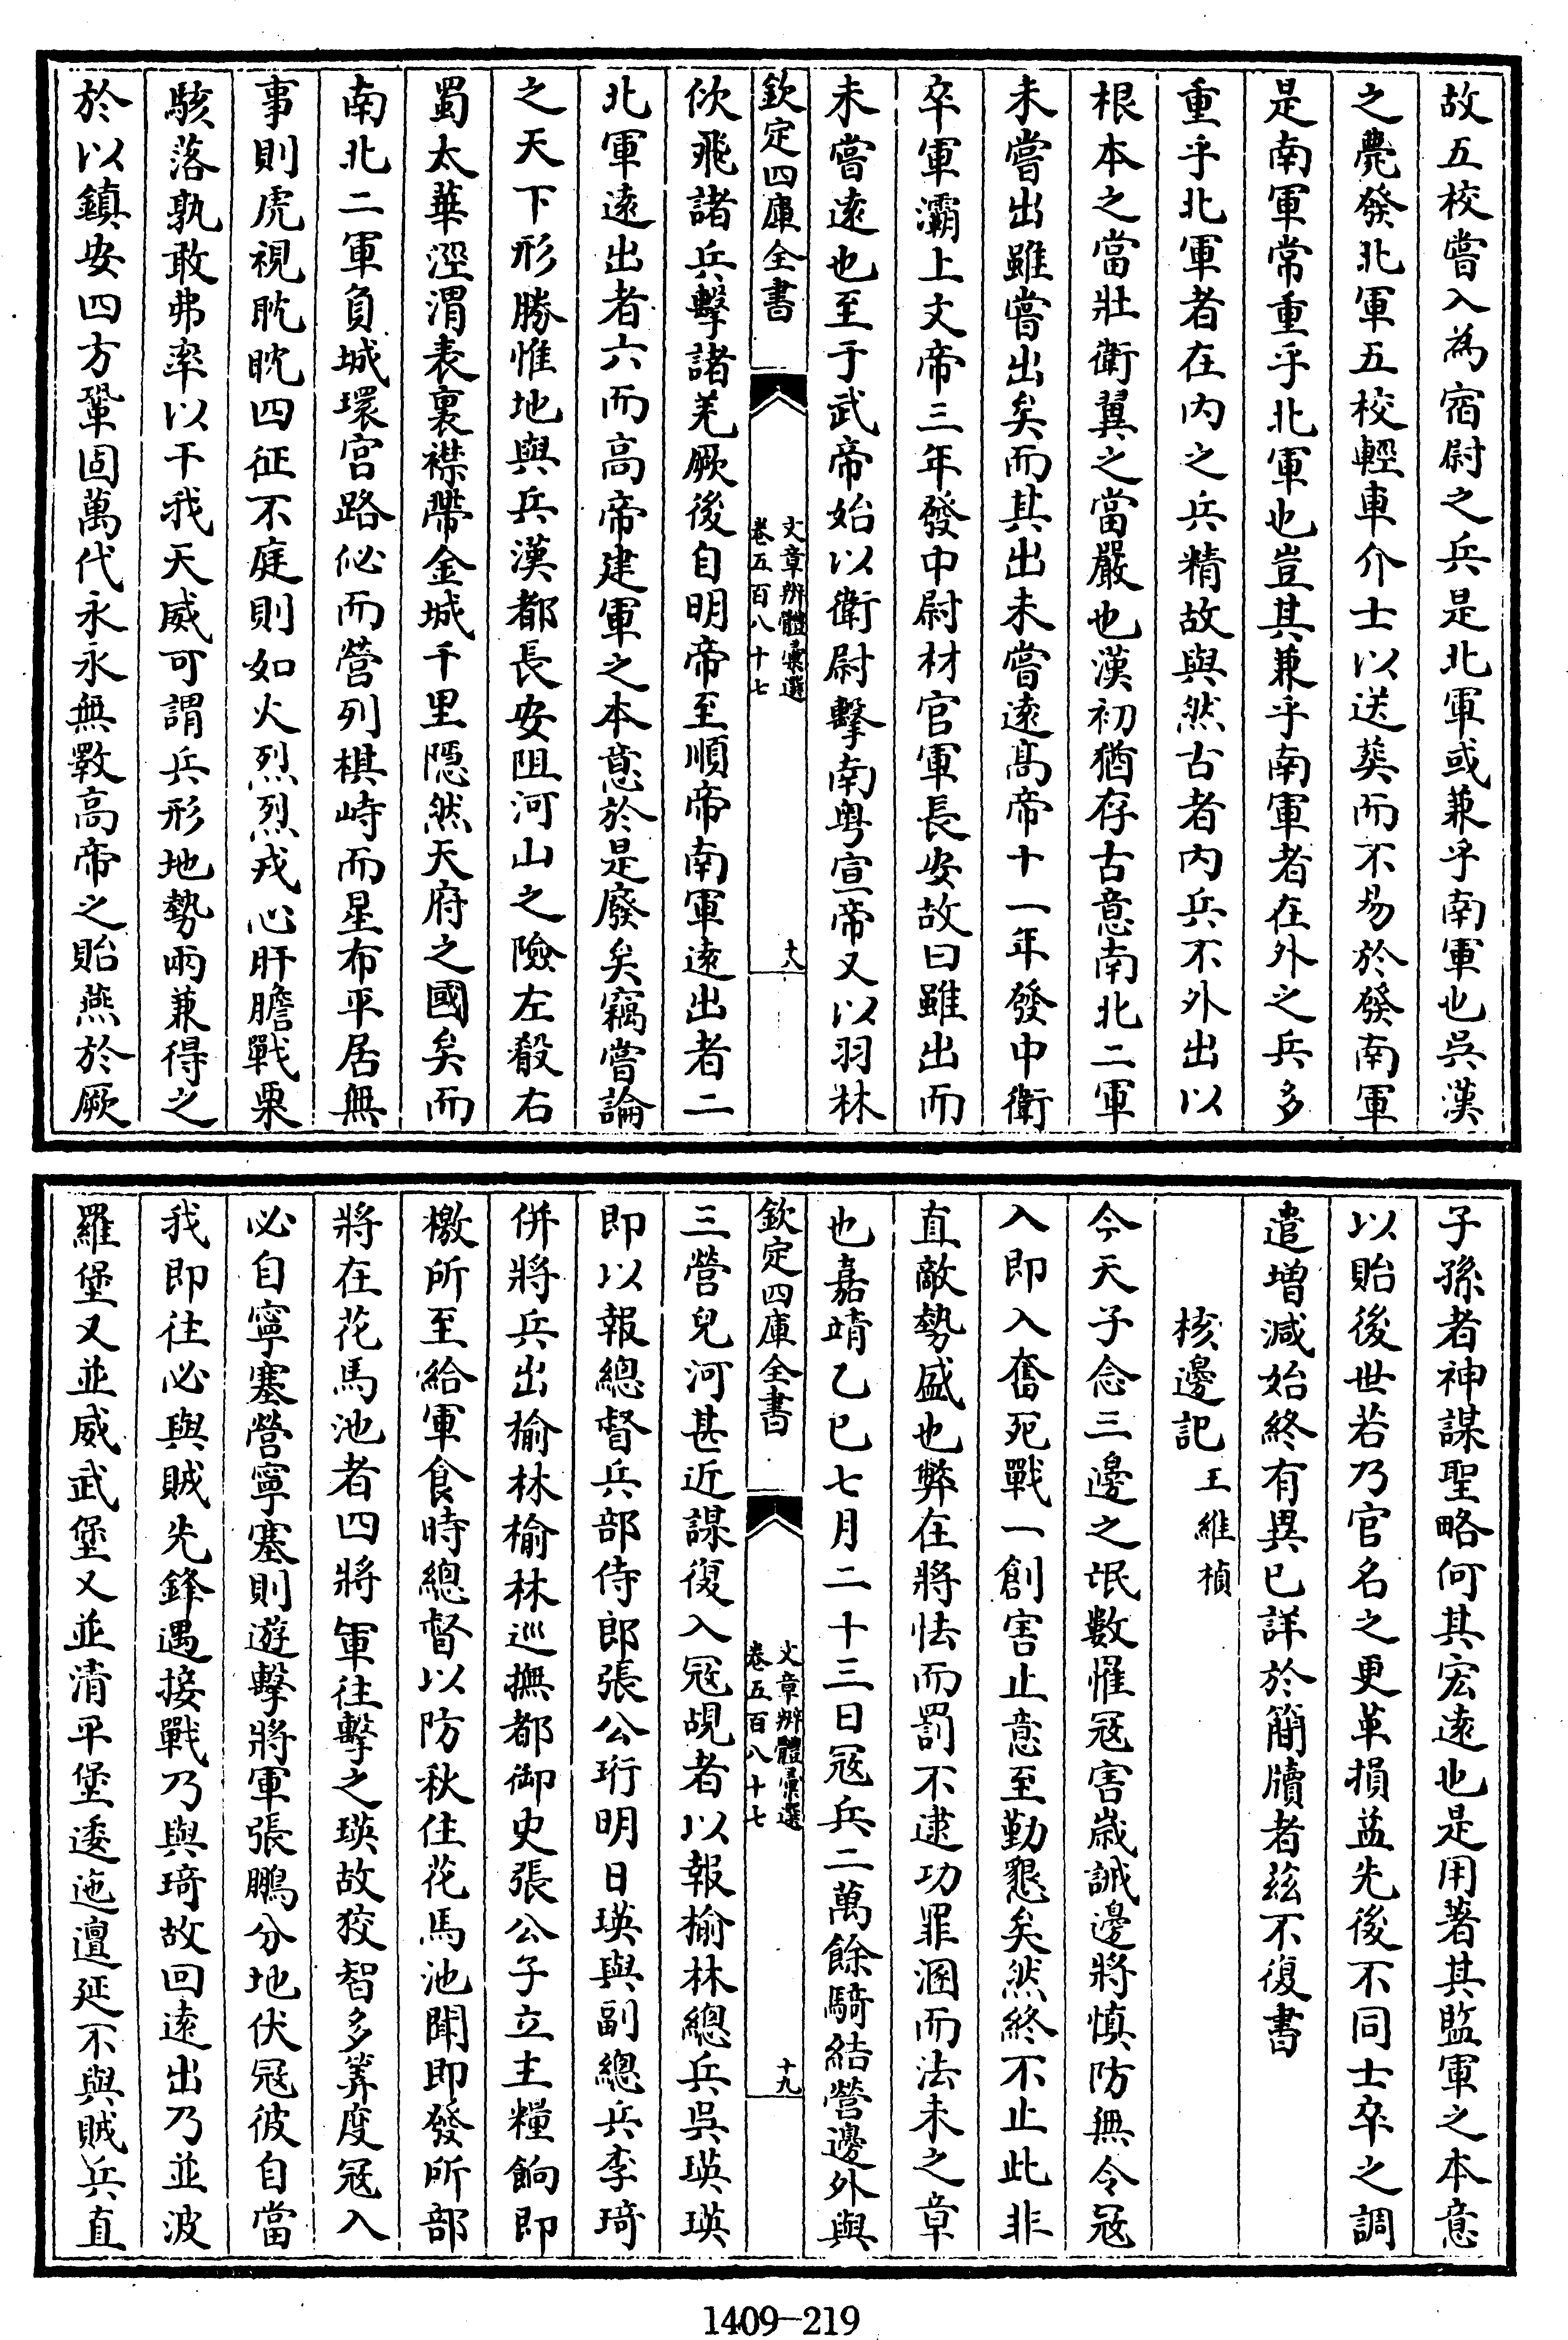 故五校嘗入為宿尉之兵是北軍或兼乎南軍也吳漢
之薨發北軍五校輕車介士以送葬而不易於發南軍
是南軍常重乎北軍也豈其兼乎南軍者在外之兵多
重乎北軍者在内之兵精故與然古者内兵不外出以
根本之當壯衛翼之當嚴也漢初猶存古意南北二軍
未嘗出雖嘗出矣而其出未嘗遠髙帝十一年發中衛
卒軍灞上文帝三年發中尉材官軍長安故曰雖出而
未嘗遠也至于武帝始以衛尉擊南粤宣帝又以羽林
欽定四庫全書
文章辨體彙選
卷五百八十七
十八
佽飛諸兵擊諸羌厥後自明帝至順帝南軍遠出者二
北軍遠出者六而高帝建軍之本意於是廢矣竊嘗論
之天下形勝惟地與兵漢都長安阻河山之險左殽右
蜀太華涇渭表裏襟帶金城千里隱然天府之國矣而
南北二軍負城環宫路佖而營列棋峙而星布平居無
事則虎視眈眈四征不庭則如火烈烈戎心肝膽戰栗
駭落孰敢弗率以干我天威可謂兵形地勢兩兼得之
於以鎮安四方鞏固萬代永永無斁高帝之貽燕於厥
子孫者神謀聖略何其宏遠也是用著其監軍之本意
以貽後世若乃官名之更革損益先後不同士卒之調
遣增減始終有異已詳於簡牘者兹不復書
核邊記
王維楨
今天子念三邊之氓數罹冦害嵗誡邊將慎防無令冦
入即入奮死戰一創害止意至勤懇矣然終不止此非
直敵勢盛也弊在將怯而罰不逮功罪溷而法未之章
也嘉靖乙巳七月二十三日冦兵二萬餘騎結營邊外與
欽定四庫全書
文章辨體彙選
卷五百八十七
十九
三營兒河甚近謀復入冦覘者以報榆林總兵吳瑛瑛
即以報總督兵部侍郎張公珩明日瑛與副總兵李琦
併將兵出榆林榆林巡撫都御史張公子立主糧餉即
檄所至給軍食時總督以防秋住花馬池聞即發所部
將在花馬池者四將軍往擊之瑛故狡智多筭度冦入
必自寧塞營寧塞則遊擊將軍張鵬分地伏冦彼自當
我即往必與賊先鋒遇接戰乃與琦故回遠出乃並波
羅堡又並威武堡又並清平堡逶迤邅延不與賊兵直
1409-219